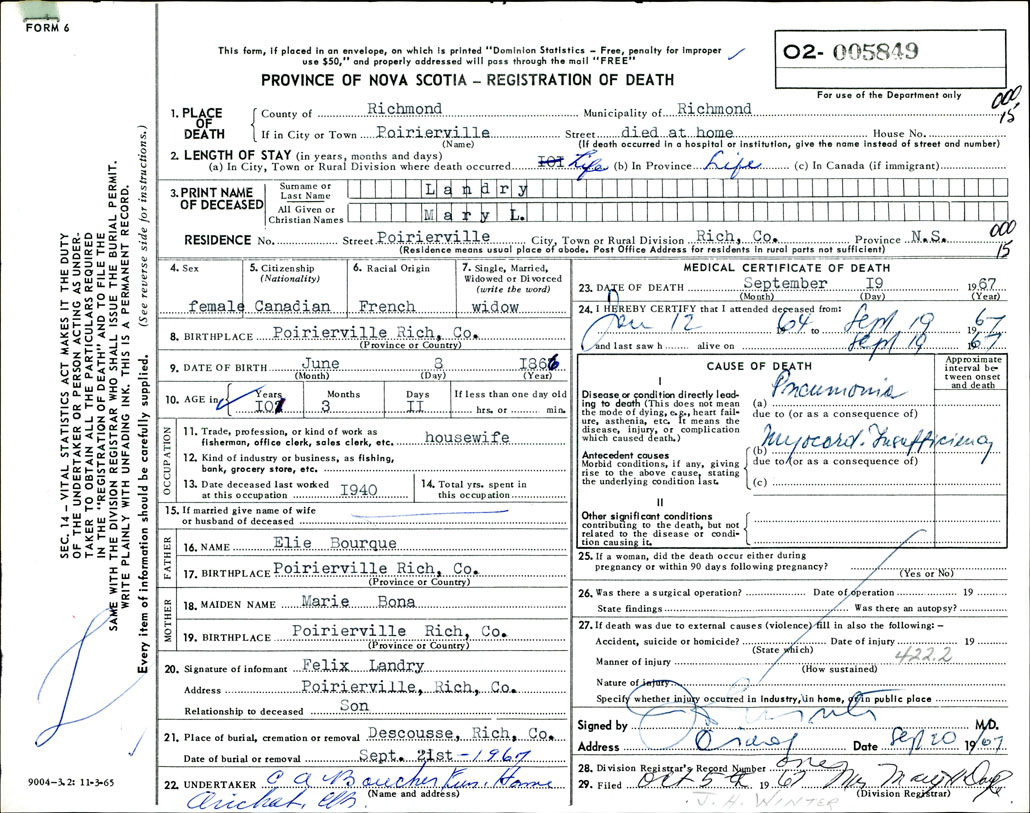 FORM 6
This form, if placed in an envelope, on which is printed "Dominion Statistics – Free, penalty for improper
use $50," and properly addressed will pass through the mail "FREE"
PROVINCE OF NOVA SCOTIA – REGISTRATION OF DEATH
O2- 005849
For use of the Department only
000
15
1. PLACE OF DEATH County of Richmond Municipality of Richmond
If in City or Town Poirierville Street died at home House No.
(Name) (If death occurred in a hospital or institution, give the name instead of street and number)
2. LENGTH OF STAY (in years, months and days)
(a) In City, Town or Rural Division where death occurred IOI Life (b) In Province Life (c) In Canada (if immigrant)
3. PRINT NAME OF DECEASED Surname or Last Name Landry
All Given or Christian Names Mary L.
000
15
RESIDENCE No. Street Poirierville City, Town or Rural Division Rich, Co. Province N.S.
(Residence means usual place of abode. Post Office Address for residents in rural parts not sufficient)
4. Sex female
5. Citizenship (Nationality) Canadian
6. Racial Origin French
7. Single, Married, Widowed or Divorced (write the word) widow
8. BIRTHPLACE Poirierville Rich, Co.
(Province or Country)
9. DATE OF BIRTH June 8 I866
(Month) (Day) (Year)
10. AGE in Years Months Days If less than one day old
IO1 3 II hrs. or min.
OCCUPATION
11. Trade, profession, or kind of work as
fisherman, office clerk, sales clerk, etc. housewife
12. Kind of industry or business, as fishing,
bank, grocery store, etc.
13. Date deceased last worked at this occupation I940
14. Total yrs. spent in this occupation
15. If married give name of wife
or husband of deceased
FATHER
16. NAME Elie Bourque
17. BIRTHPLACE Poirierville Rich, Co.
(Province or Country)
MOTHER
18. MAIDEN NAME Marie Bona
19. BIRTHPLACE Poirierville Rich, Co.
(Province or Country)
20. Signature of informant Felix Landry
Address Poirierville, Rich, Co.
Relationship to deceased Son
21. Place of burial, cremation or removal Descousse, Rich, Co.
Date of burial or removal Sept. 21st-1967
22. UNDERTAKER C A Boucher Fun. Home
(Name and address)
Arichat, CB.
MEDICAL CERTIFICATE OF DEATH
23. DATE OF DEATH September I9 1967
(Month) (Day) (Year)
24. I HEREBY CERTIFY that I attended deceased from:
Jan 12 64 to Sept 19 1967
and last saw h alive on Sept 19 1967
CAUSE OF DEATH
Approximate interval between onset and death
I
Disease or condition directly leading to death (This does not mean the mode of dying, e.g., heart failure, asthenia, etc. It means the disease, injury, or complication which caused death.)
(a) Pneumonia
due to (or as a consequence of)
Antecedent causes
Morbid conditions, if any, giving rise to the above cause, stating the underlying condition last.
(b) Myocard. Insufficiency
due to (or as a consequence of)
(c)
II
Other significant conditions
contributing to the death, but not related to the disease or condition causing it.
25. If a woman, did the death occur either during
pregnancy or within 90 days following pregnancy?
(Yes or No)
26. Was there a surgical operation? Date of operation 19
State findings Was there an autopsy?
27. If death was due to external causes (violence) fill in also the following: –
Accident, suicide or homicide? Date of injury 19
(State which) 422.2
Manner of injury
(How sustained)
Nature of injury
Specify whether injury occurred in industry, in home, or in public place
Signed by M.D.
Address Date Sept 20 1967
28. Division Registrar's Record Number
29. Filed Oct 5th 1967 Mrs Mary
(Division Registrar)
J. H. WINTER
SEC. 14 – VITAL STATISTICS ACT MAKES IT THE DUTY
OF THE UNDERTAKER OR PERSON ACTING AS UNDER-
TAKER TO OBTAIN ALL THE PARTICULARS REQUIRED
IN THE "REGISTRATION OF DEATH" AND TO FILE THE
SAME WITH THE DIVISION REGISTRAR WHO SHALL ISSUE THE BURIAL PERMIT.
WRITE PLAINLY WITH UNFADING INK. THIS IS A PERMANENT RECORD.
Every item of information should be carefully supplied. (See reverse side for instructions.)
9004-3.2: 11-3-65